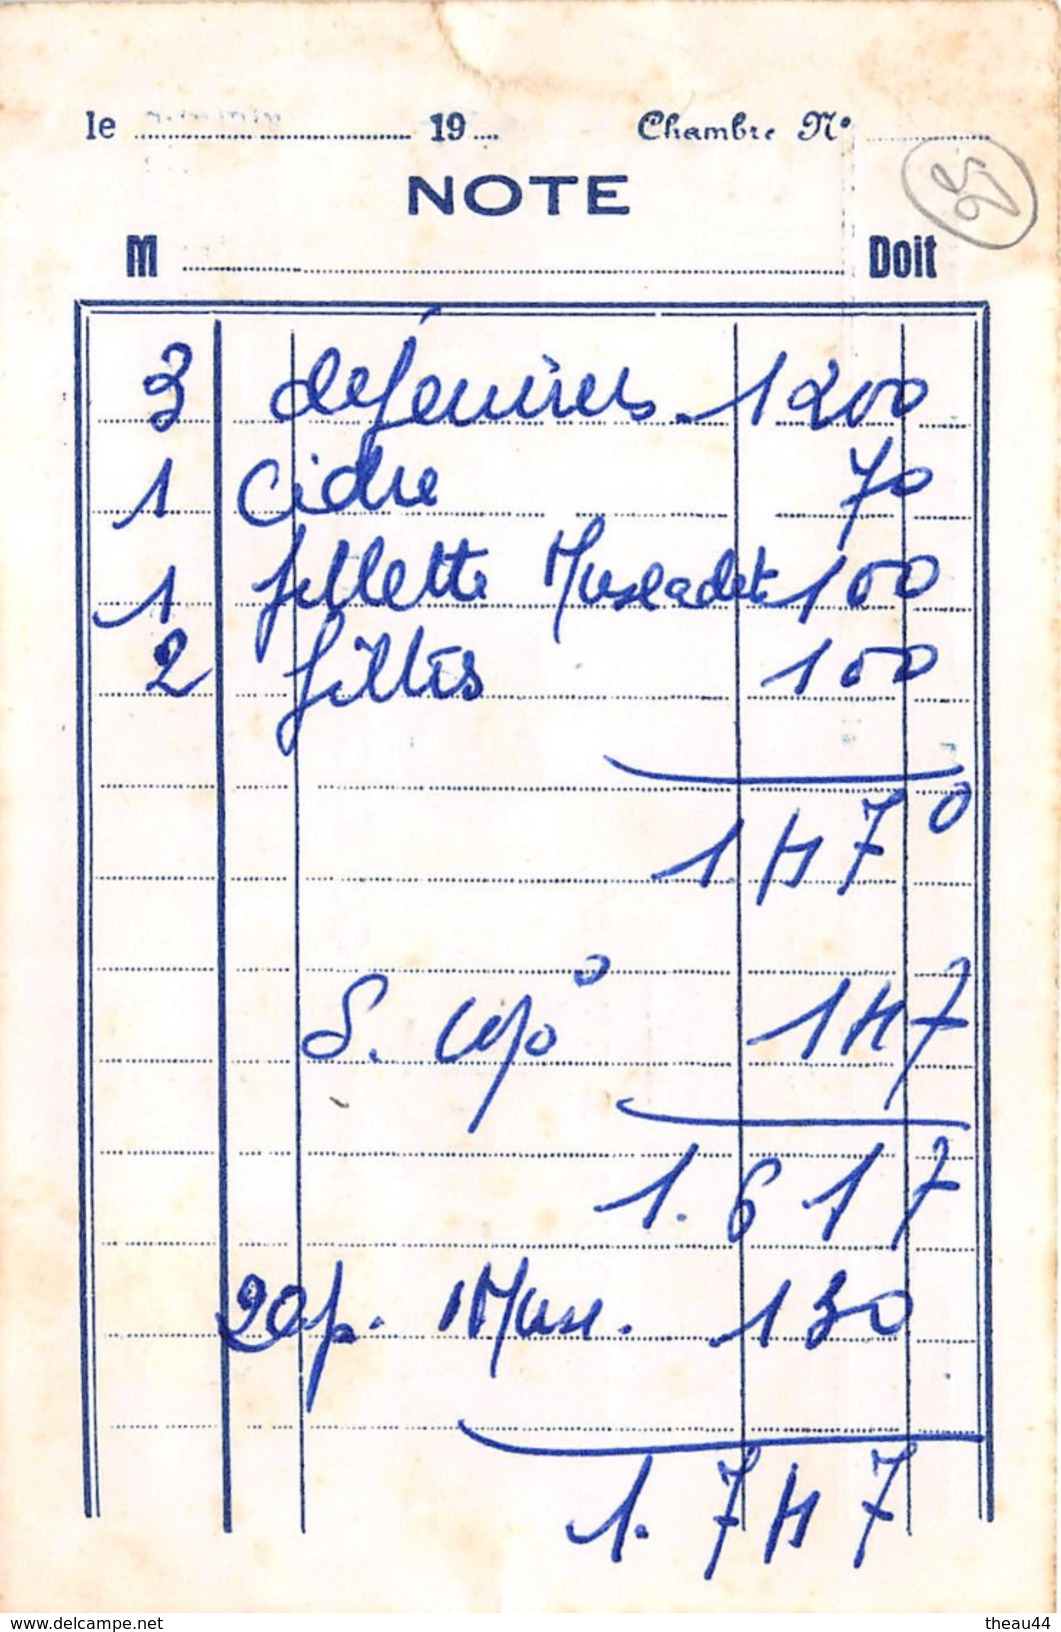 le 19 Chambre N°
NOTE
M Doit
3 déjeuners 1200
1 Cidre 70
1 fillette Muscadet 100
2 filtres 100
1470
S. 10% 147
1.617
2 ap. Musc. 130
1.747
www.delcampe.net theau44